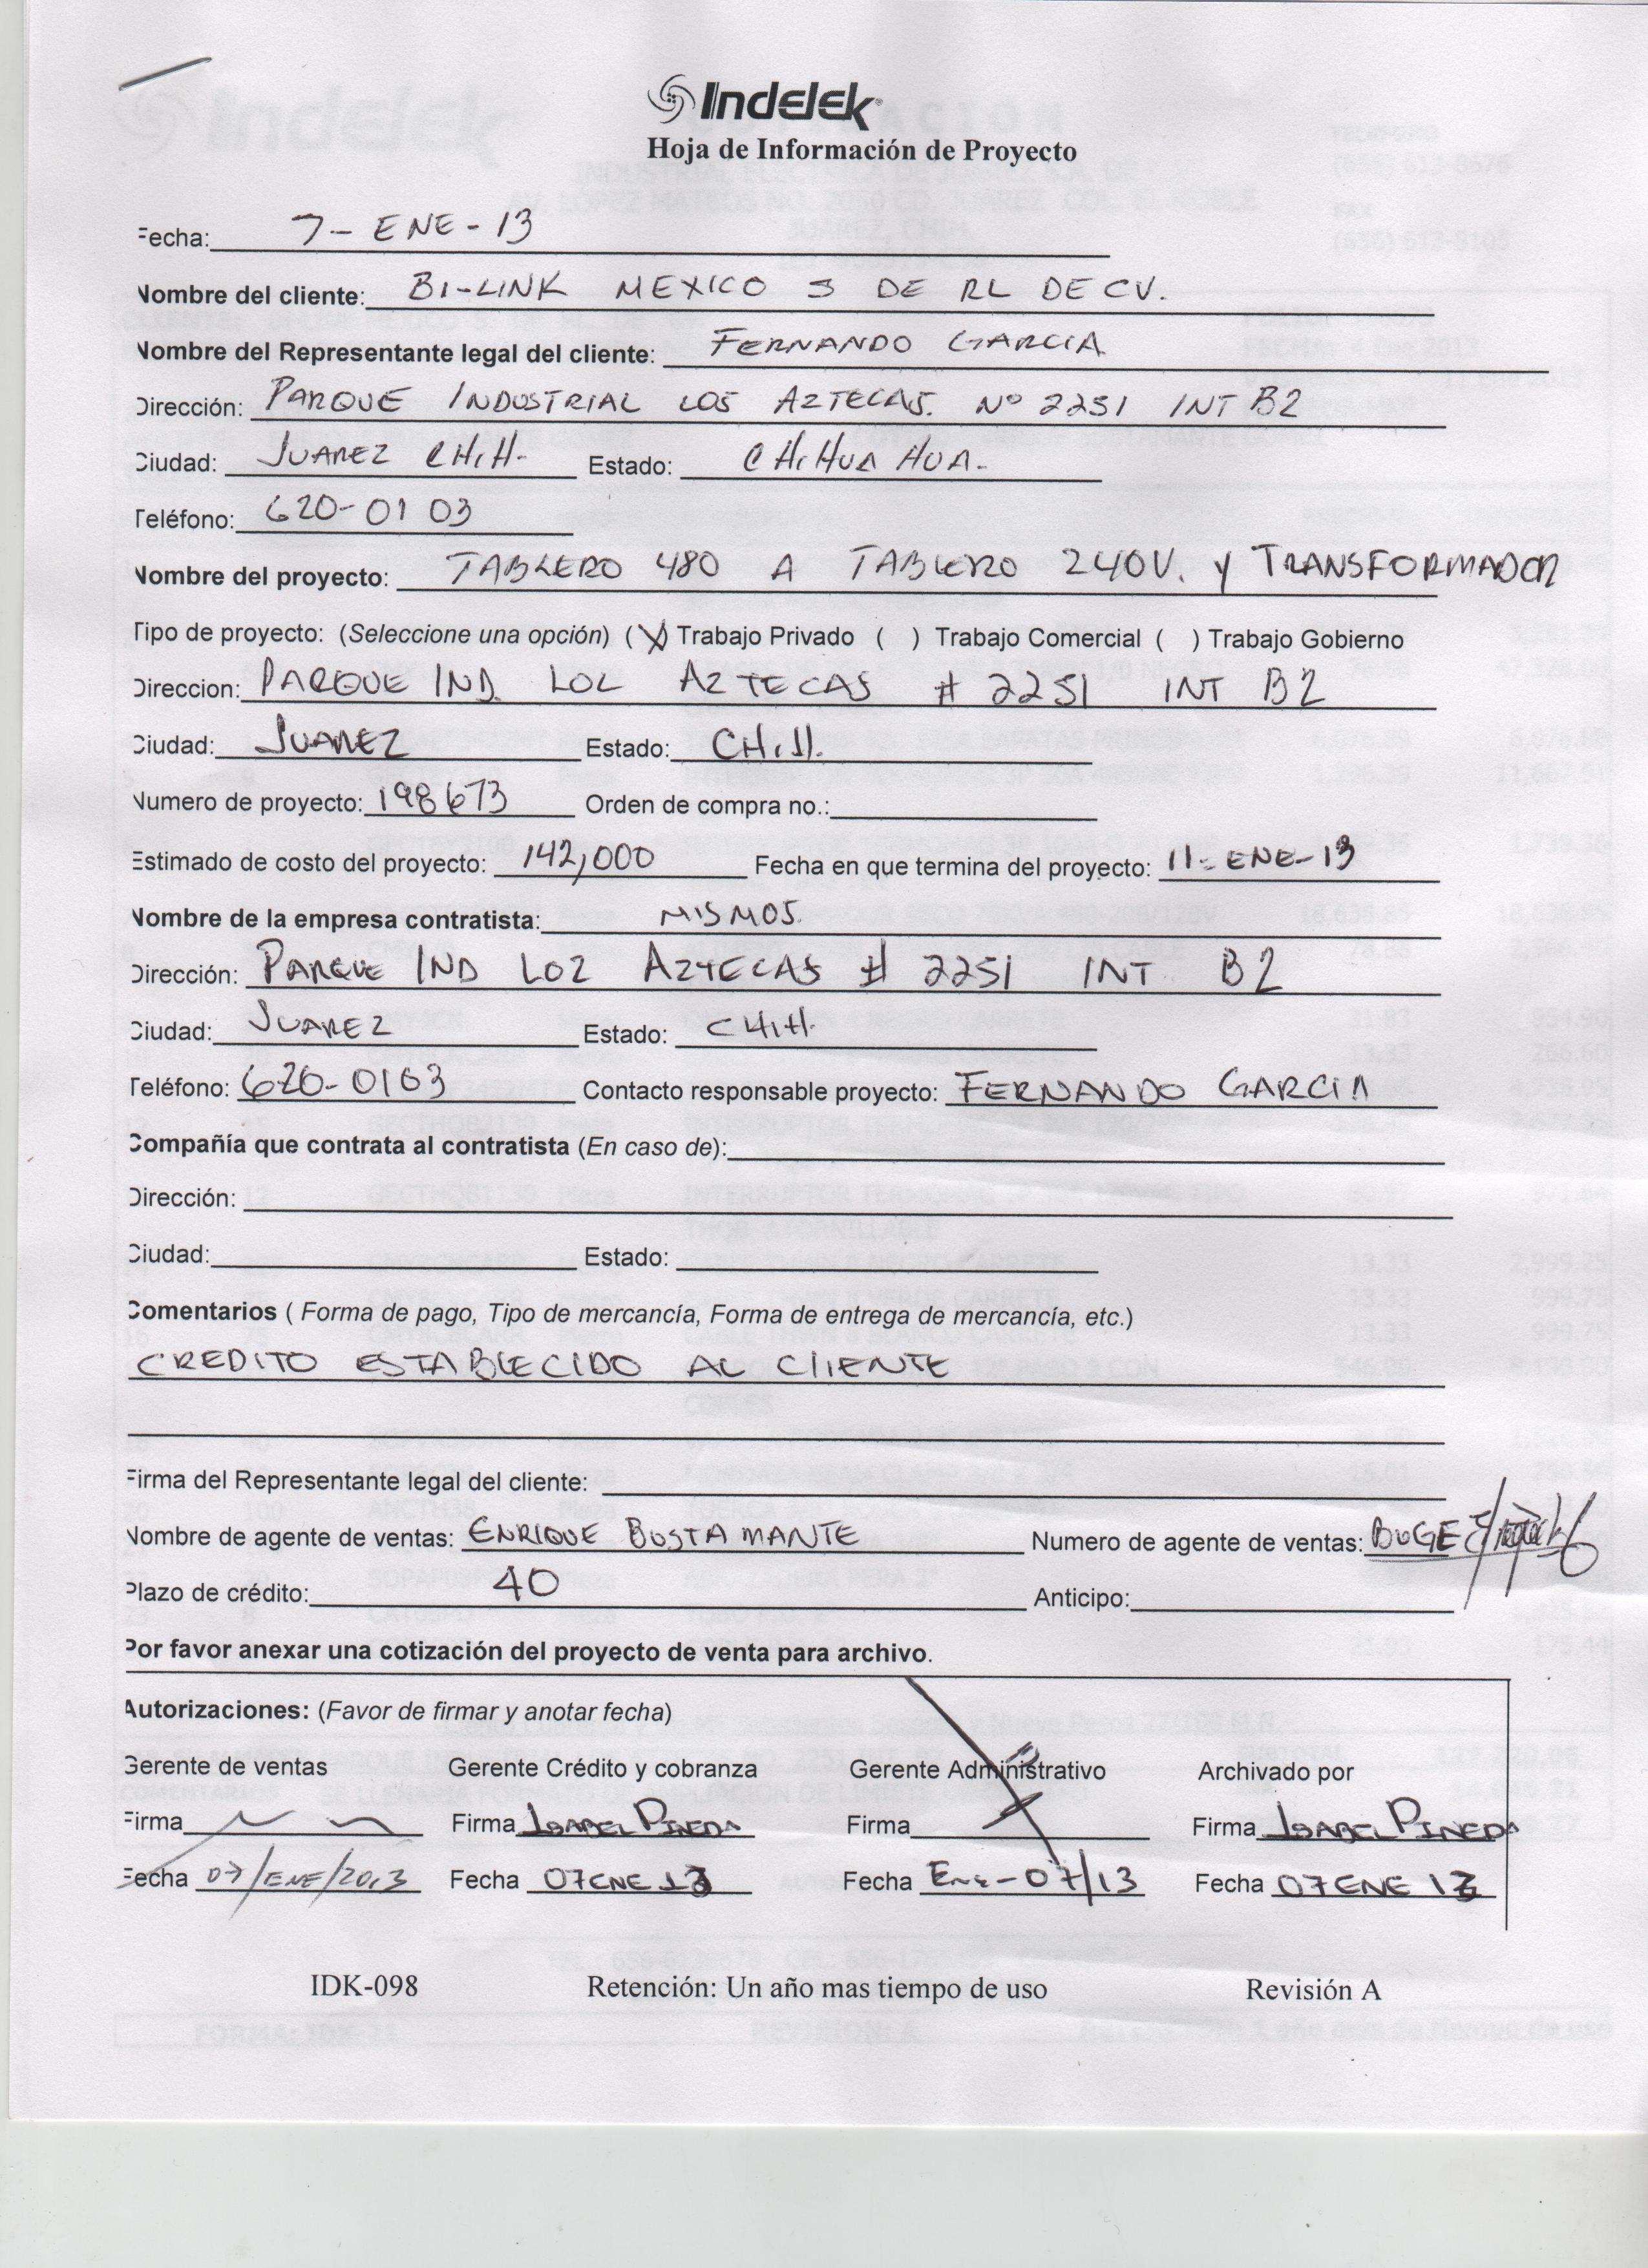 Indelek
Hoja de Información de Proyecto
Fecha: 7-ENE-13
Nombre del cliente: BI-LINK MEXICO S DE RL DE CV.
Nombre del Representante legal del cliente: FERNANDO GARCIA
Dirección: PARQUE INDUSTRIAL LOS AZTECAS. Nº 2251 INT B2
Ciudad: JUAREZ CHIH. Estado: CHIHUAHUA.
Teléfono: 620-01 03
Nombre del proyecto: TABLERO 480 A TABLERO 240V. Y TRANSFORMADOR
Tipo de proyecto: (Seleccione una opción) (X) Trabajo Privado ( ) Trabajo Comercial ( ) Trabajo Gobierno
Direccion: PARQUE IND. LOZ AZTECAS # 2251 INT B2
Ciudad: JUAREZ Estado: CHIH.
Numero de proyecto: 198673 Orden de compra no.:
Estimado de costo del proyecto: 142,000 Fecha en que termina del proyecto: 11-ENE-13
Nombre de la empresa contratista: MISMOS.
Dirección: PARQUE IND LOZ AZTECAS # 2251 INT B2
Ciudad: JUAREZ Estado: CHIH.
Teléfono: 620-0103 Contacto responsable proyecto: FERNANDO GARCIA
Compañía que contrata al contratista (En caso de):
Dirección:
Ciudad: Estado:
Comentarios ( Forma de pago, Tipo de mercancía, Forma de entrega de mercancía, etc.)
CREDITO ESTABLECIDO AL CLIENTE
Firma del Representante legal del cliente:
Nombre de agente de ventas: ENRIQUE BUSTAMANTE Numero de agente de ventas: BUGE
Plazo de crédito: 40 Anticipo:
Por favor anexar una cotización del proyecto de venta para archivo.
Autorizaciones: (Favor de firmar y anotar fecha)
Gerente de ventas Gerente Crédito y cobranza Gerente Administrativo Archivado por
Firma Firma ISABEL PINEDA Firma Firma ISABEL PINEDA
Fecha 07/ENE/2013 Fecha 07 ENE 13 Fecha Ene-07/13 Fecha 07 ENE 13
IDK-098 Retención: Un año mas tiempo de uso Revisión A